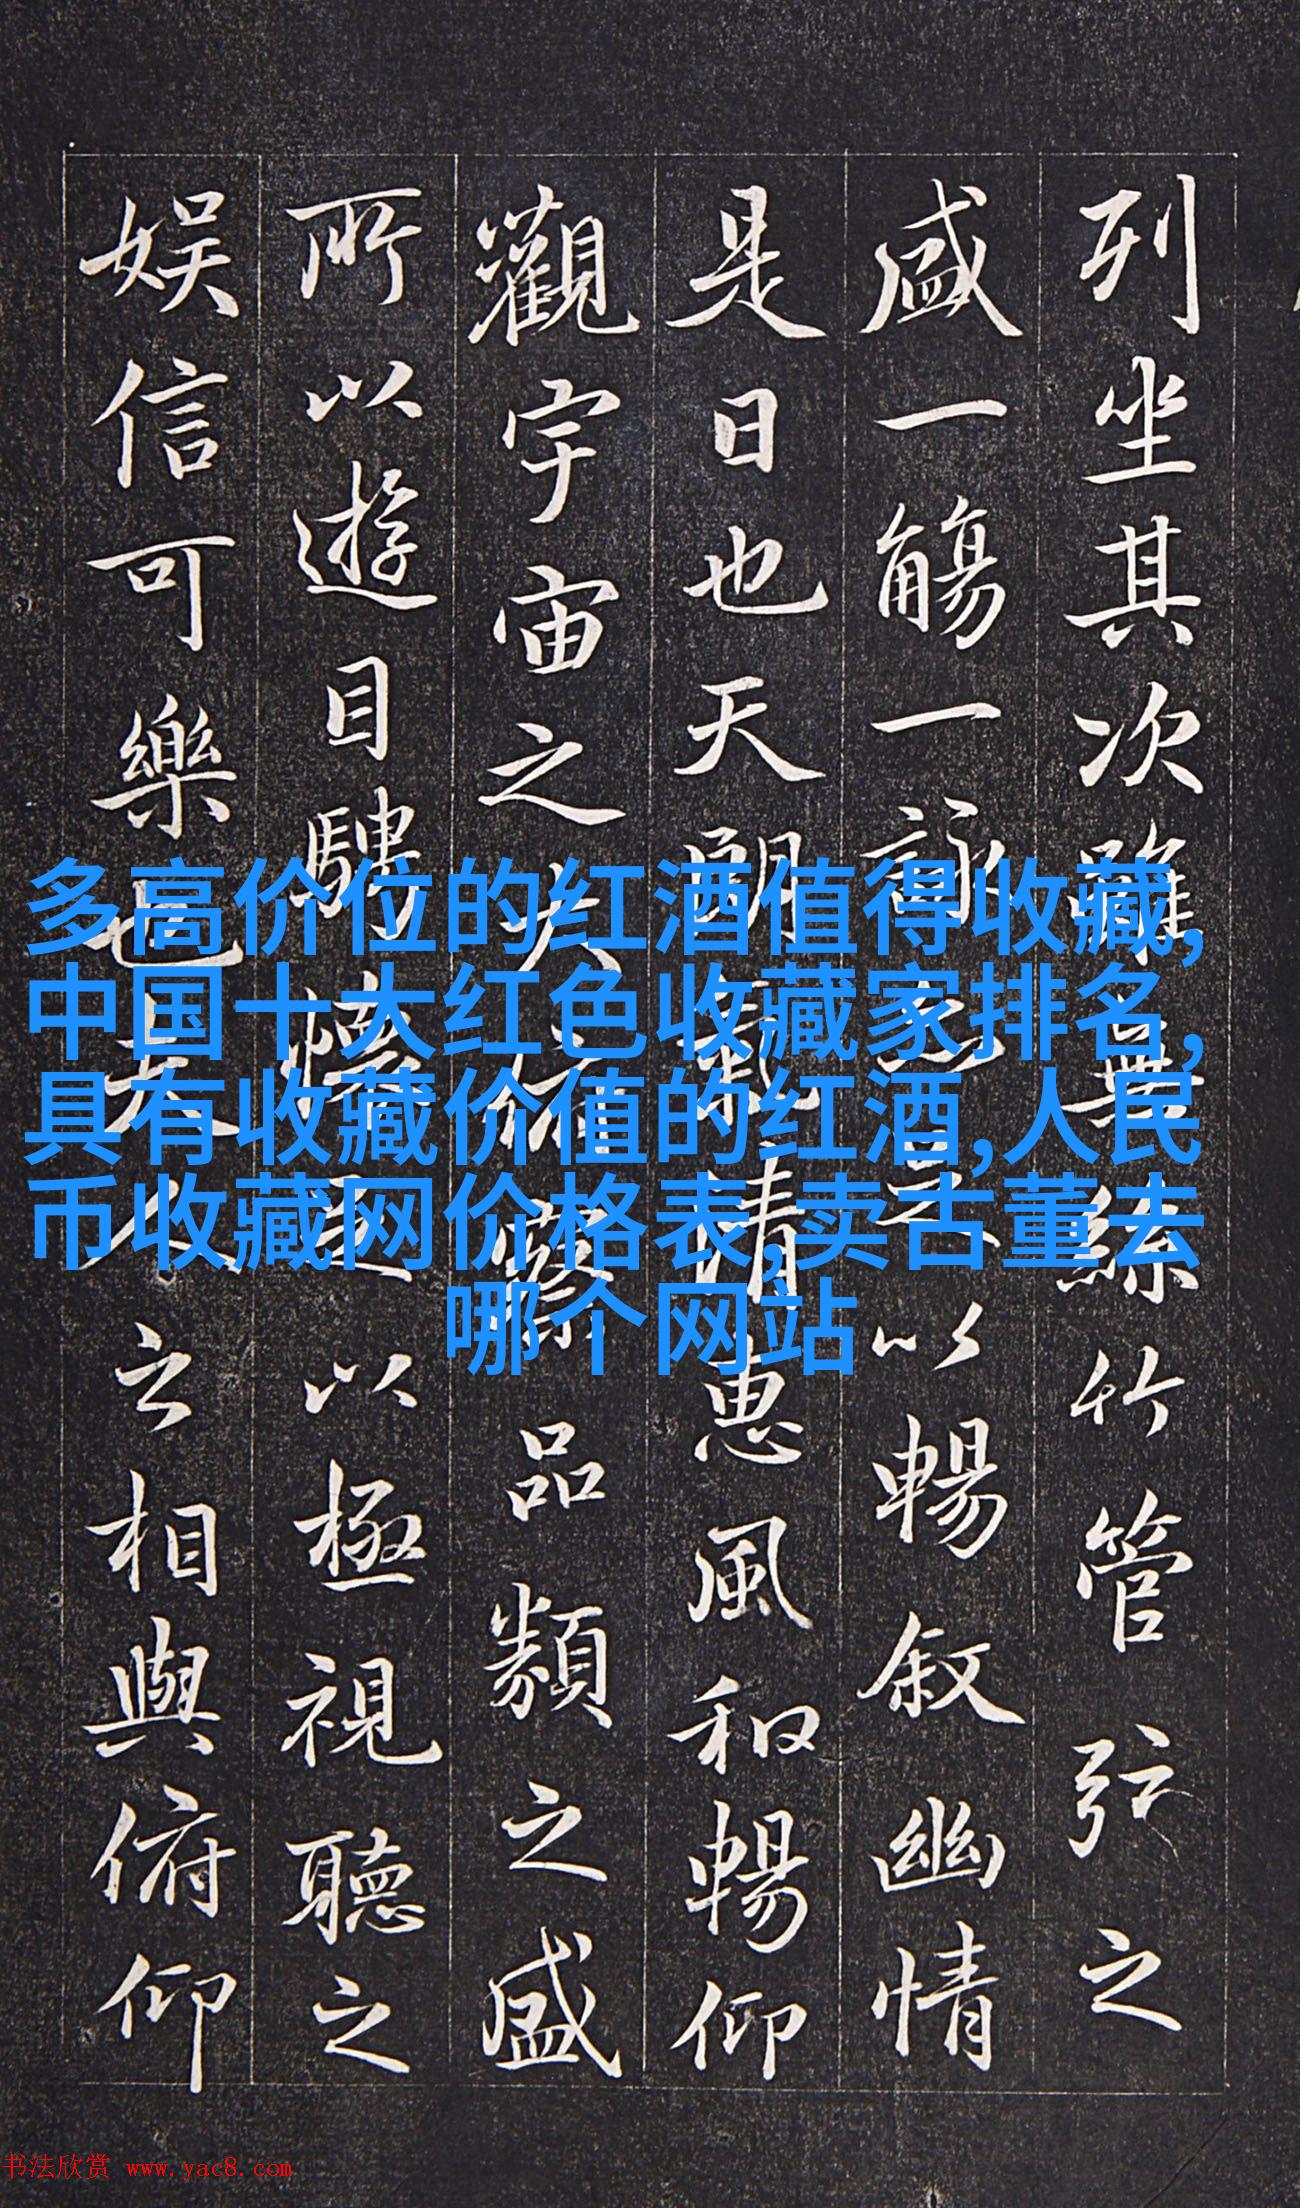 列坐其次雖無絲竹管弦之
盛一觴一詠亦足以暢敘幽情
是日也天朗氣清惠風和暢仰
觀宇宙之大俯察品類之盛
所以遊目騁懷足以極視聽之
娱信可樂也夫人之相與俯仰
多高价位的红酒值得收藏,
中国十大红色收藏家排名,
具有收藏价值的红酒,人民
币收藏网价格表,卖古董去
哪个网站
书法欣赏 www.yac8.com